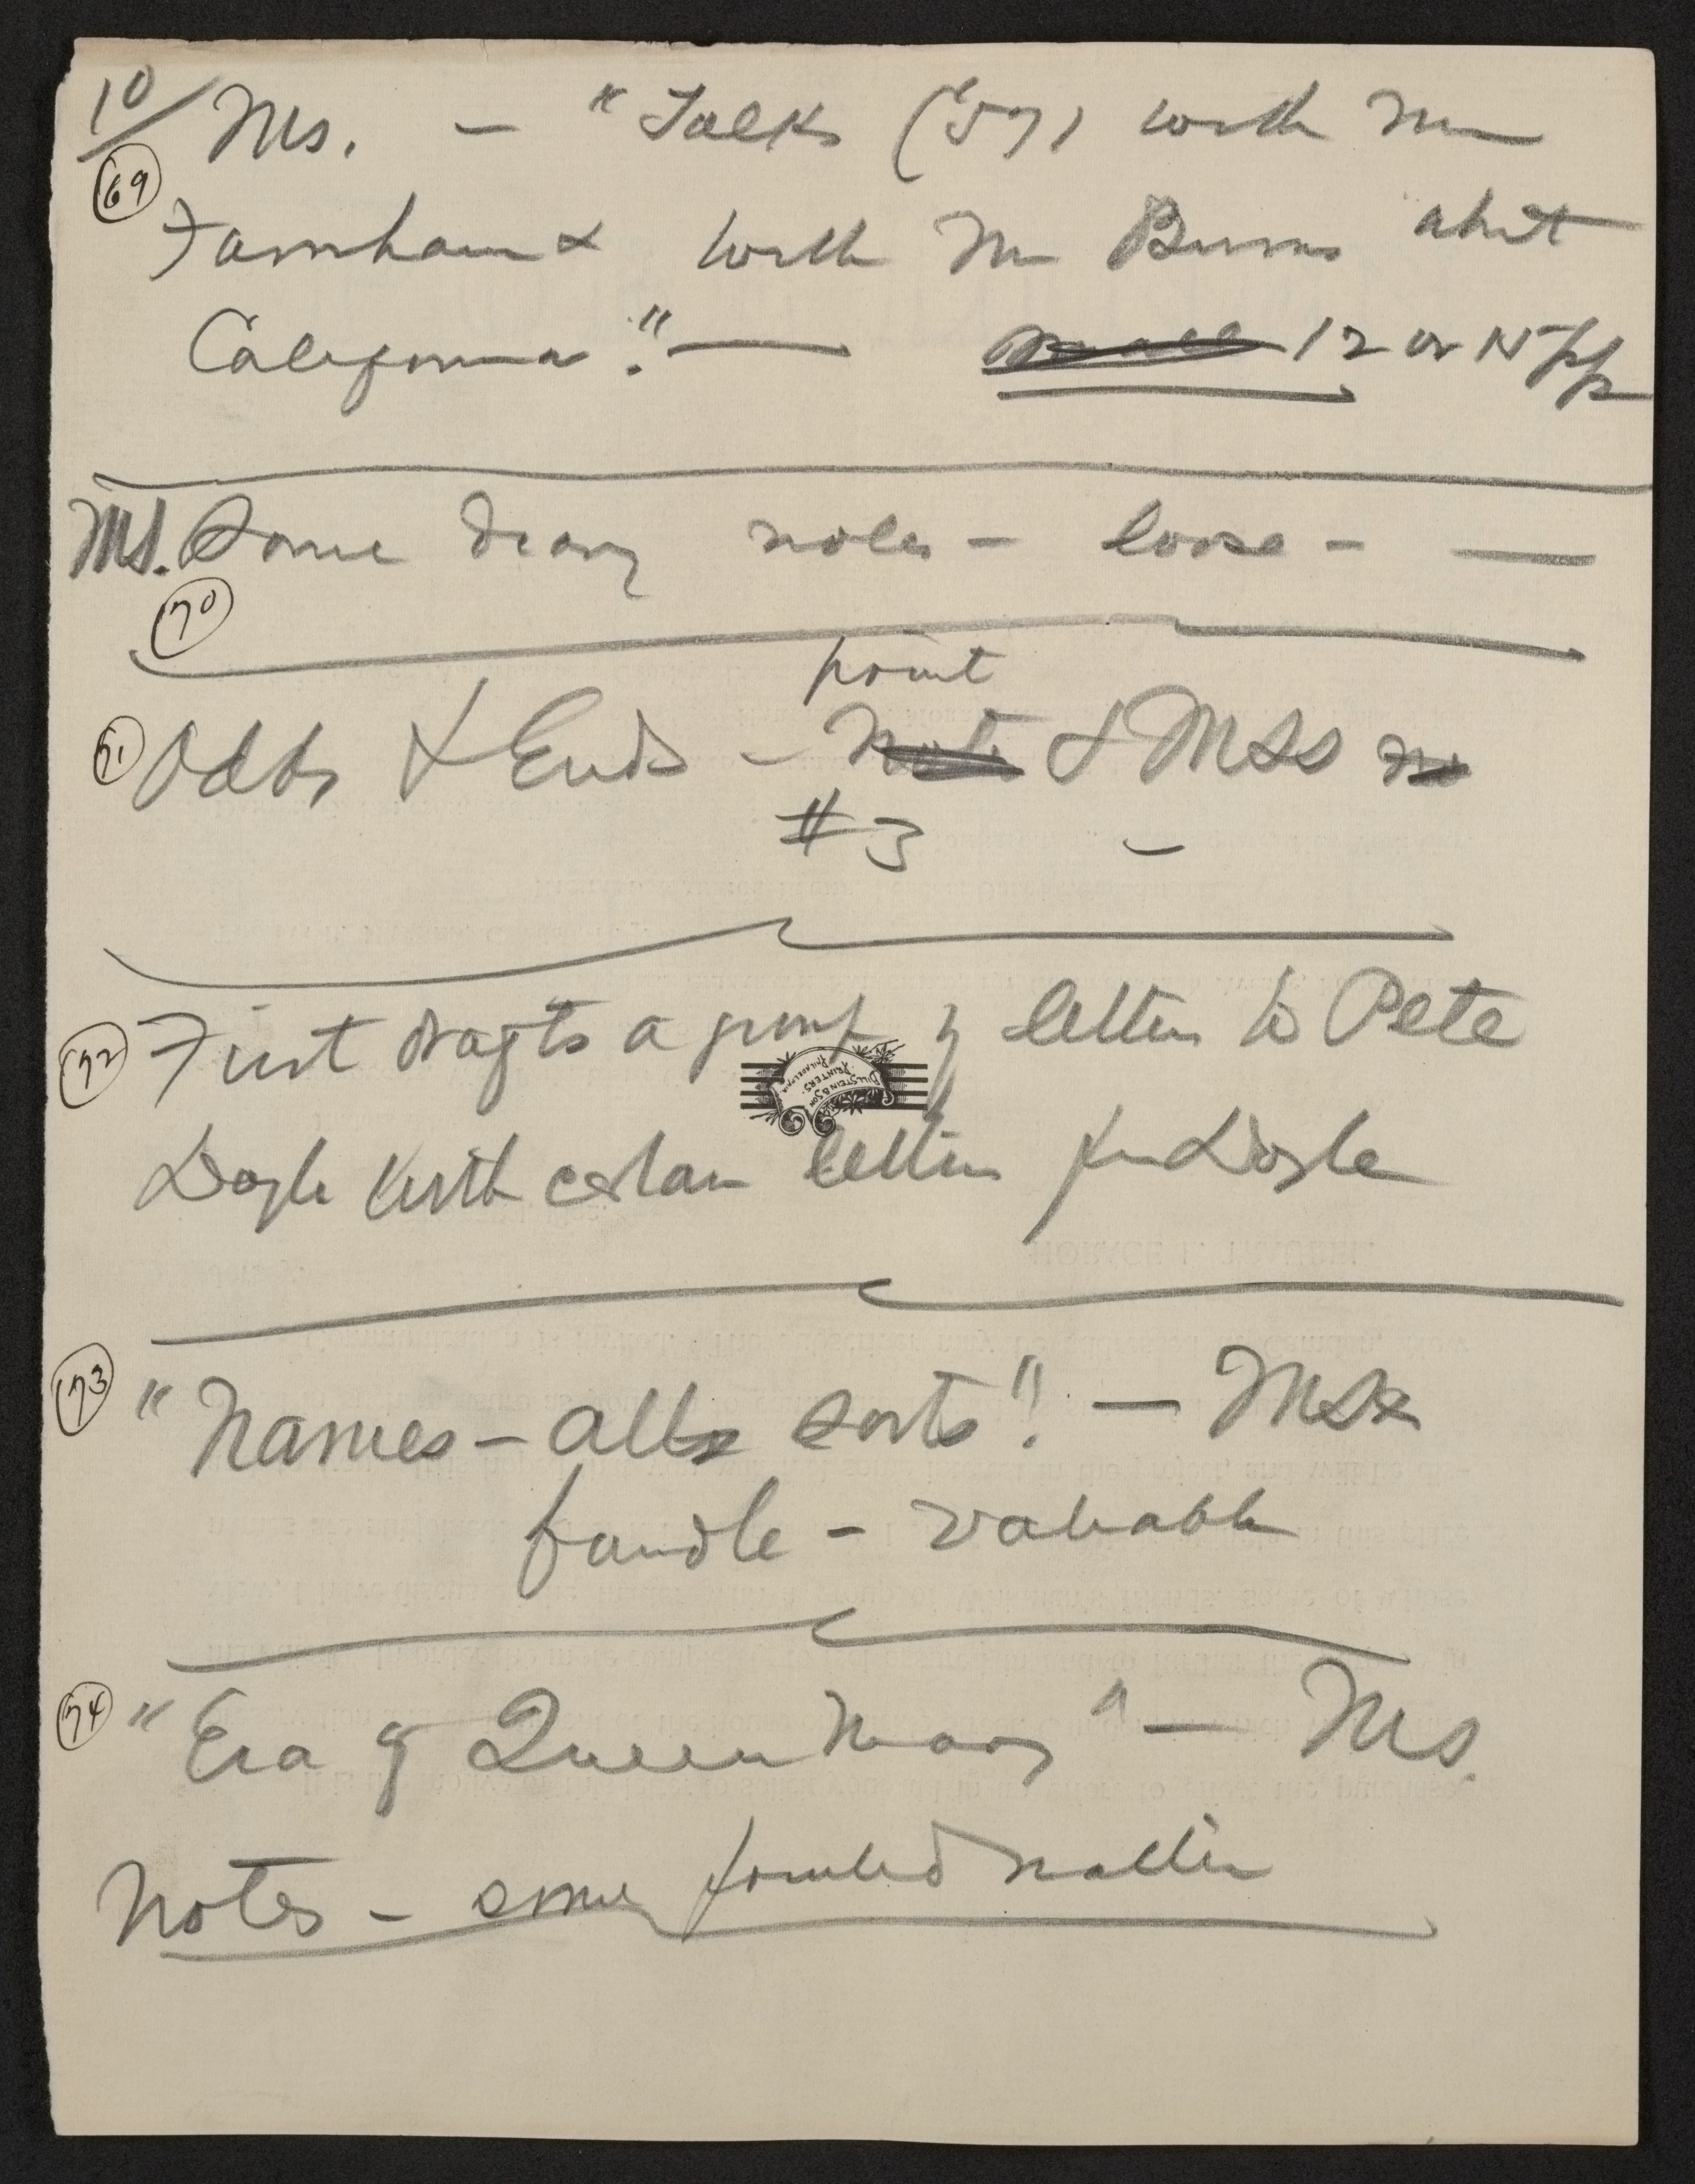 10/ Ms. — "Talks ('57) with Mr
69
Farnham & with Mr Burns abut
California." — small 12 or 15 pp
Ms. Some diary notes — loose — —
70
print
71 Odds & Ends — Note & MSS no
#3 —
72 First drafts a group of letters to Pete
BILLSTEIN & SON
PRINTERS.
PHILADELPHIA
Doyle with certain letters from Doyle
73 "Names — all sorts". — MSS
bundle — valuable
74 "Era of Queen Mary" — Ms.
Notes — some printed matter